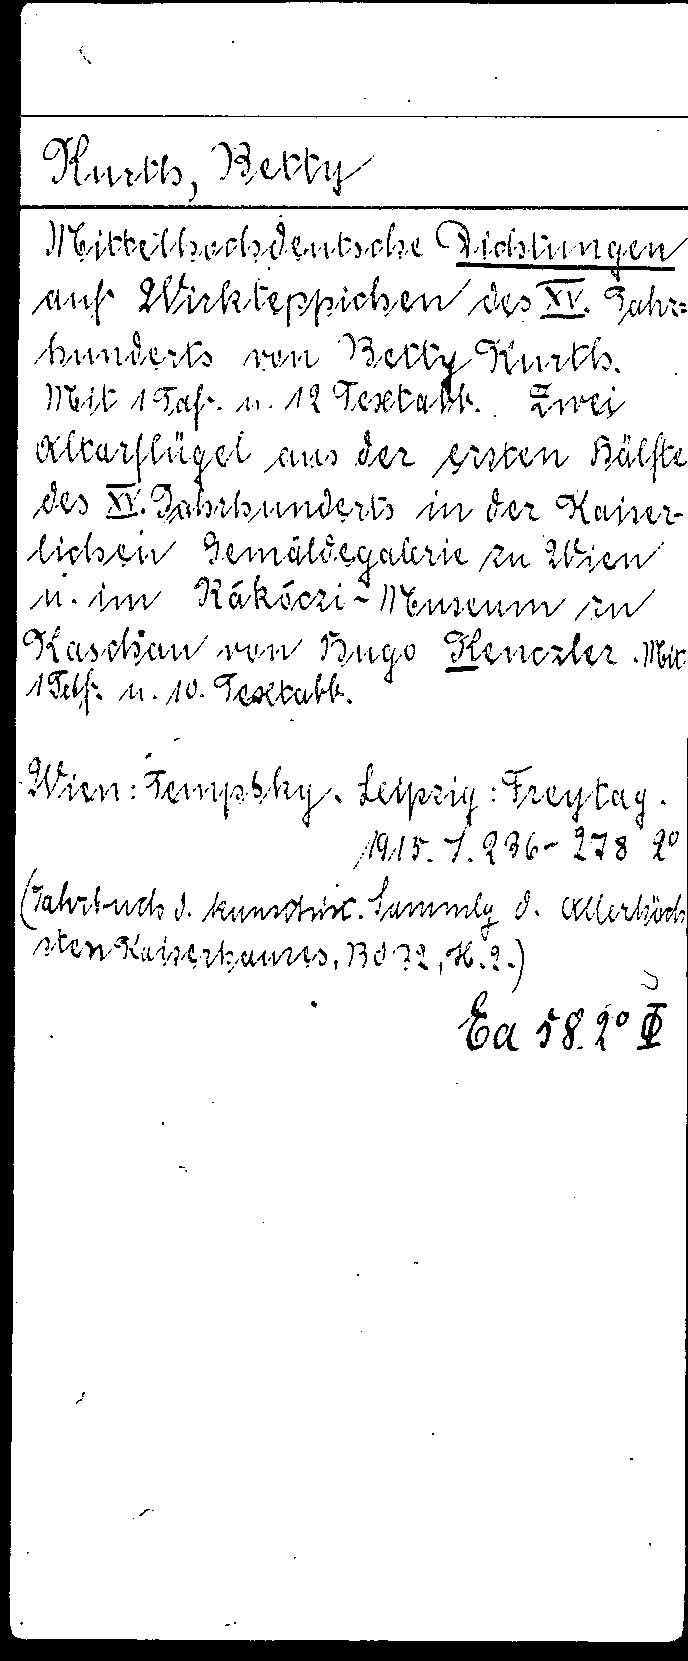 Kurth, Betty
Mittelhochdeutsche Dichtungen
auf Wirkteppichen des XV. Jahr=
hunderts von Betty Kurth.
Mit 1 Taf. u. 12 Textabb. Zwei
Altarflügel aus der ersten Hälfte
des XV. Jahrhunderts in der Kaiser-
lichen Gemäldegalerie zu Wien
u. im Rákóczi-Museum zu
Kaschau von Hugo Kenczler. Mit
1 Taf. u. 10. Textabb.
Wien: Tempsky. Leipzig: Freytag.
1915. S. 236-278 2°
(Jahrbuch d. kunsthist. Sammlg d. Allerhöch
sten Kaiserhauses, Bd 32, H. 2.)
Ea 58. 2° Φ